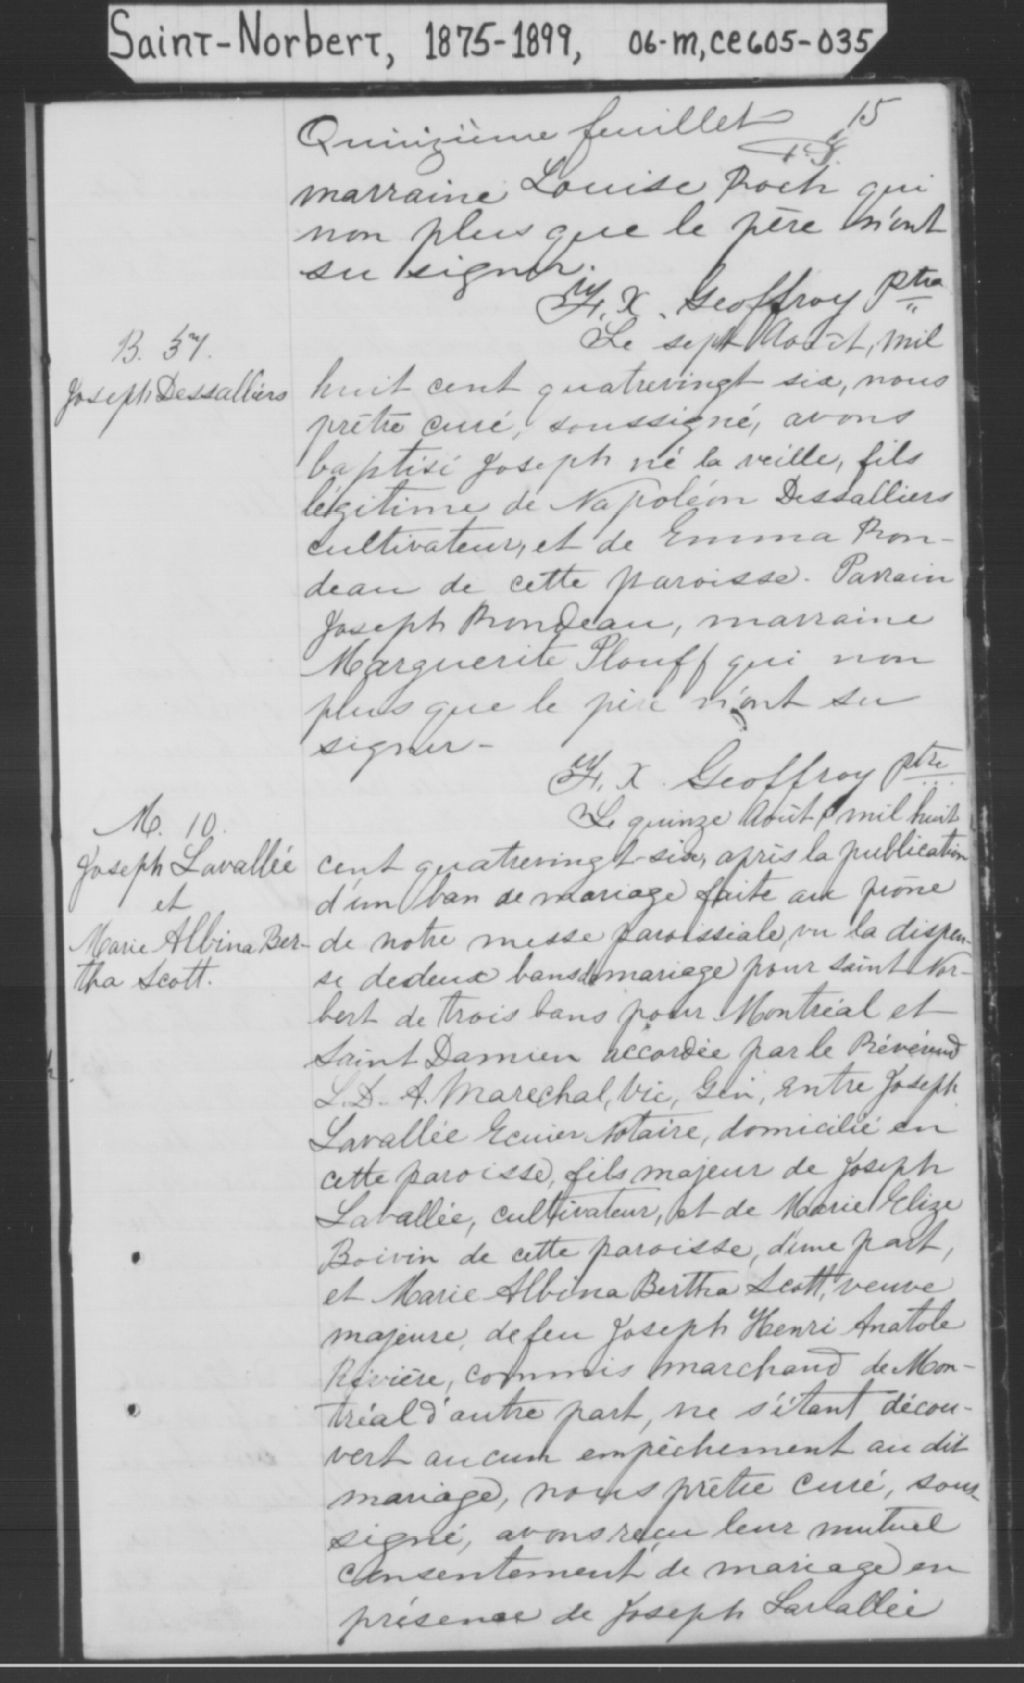 Saint-Norbert, 1875-1899, 06-M, CE605-035
Quinzième feuillet 15
marraine Louise Roch qui
non plus que le père n'ont
su signer.
F. X. Geoffroy Ptre
B. 37.
Joseph Dessalliers
Le sept Août, mil
huit cent quatrevingt six, nous
prêtre curé, soussigné, avons
baptisé Joseph né la veille, fils
légitime de Napoléon Dessalliers
cultivateur, et de Emma Ron-
deau de cette paroisse. Parrain
Joseph Rondeau, marraine
Marguerite Plouff qui non
plus que le père n'ont su
signer -
F. X. Geoffroy Ptre
M. 10.
Joseph Lavallée
et
Marie Albina Ber-
tha Scott.
Le quinze Août, mil huit
cent quatrevingt-six, après la publication
d'un ban de mariage faite au prône
de notre messe paroissiale, vu la dispen-
se de deux bans de mariage pour Saint Nor-
bert de trois bans pour Montréal et
Saint Damien accordée par le Révérend
L. D. A. Marechal, Vic, Gén, entre Joseph
Lavallée Ecuier Notaire, domicilié en
cette paroisse, fils majeur de Joseph
Lavallée, cultivateur, et de Marie Elize
Boivin de cette paroisse, d'une part,
et Marie Albina Bertha Scott, veuve
majeure, de feu Joseph Henri Anatole
Rivière, commis marchand de Mon-
tréal d'autre part, ne s'étant décou-
vert aucun empêchement au dit
mariage, nous prêtre curé, sous-
signé, avons reçu leur mutuel
consentement de mariage en
présence de Joseph Lavallée